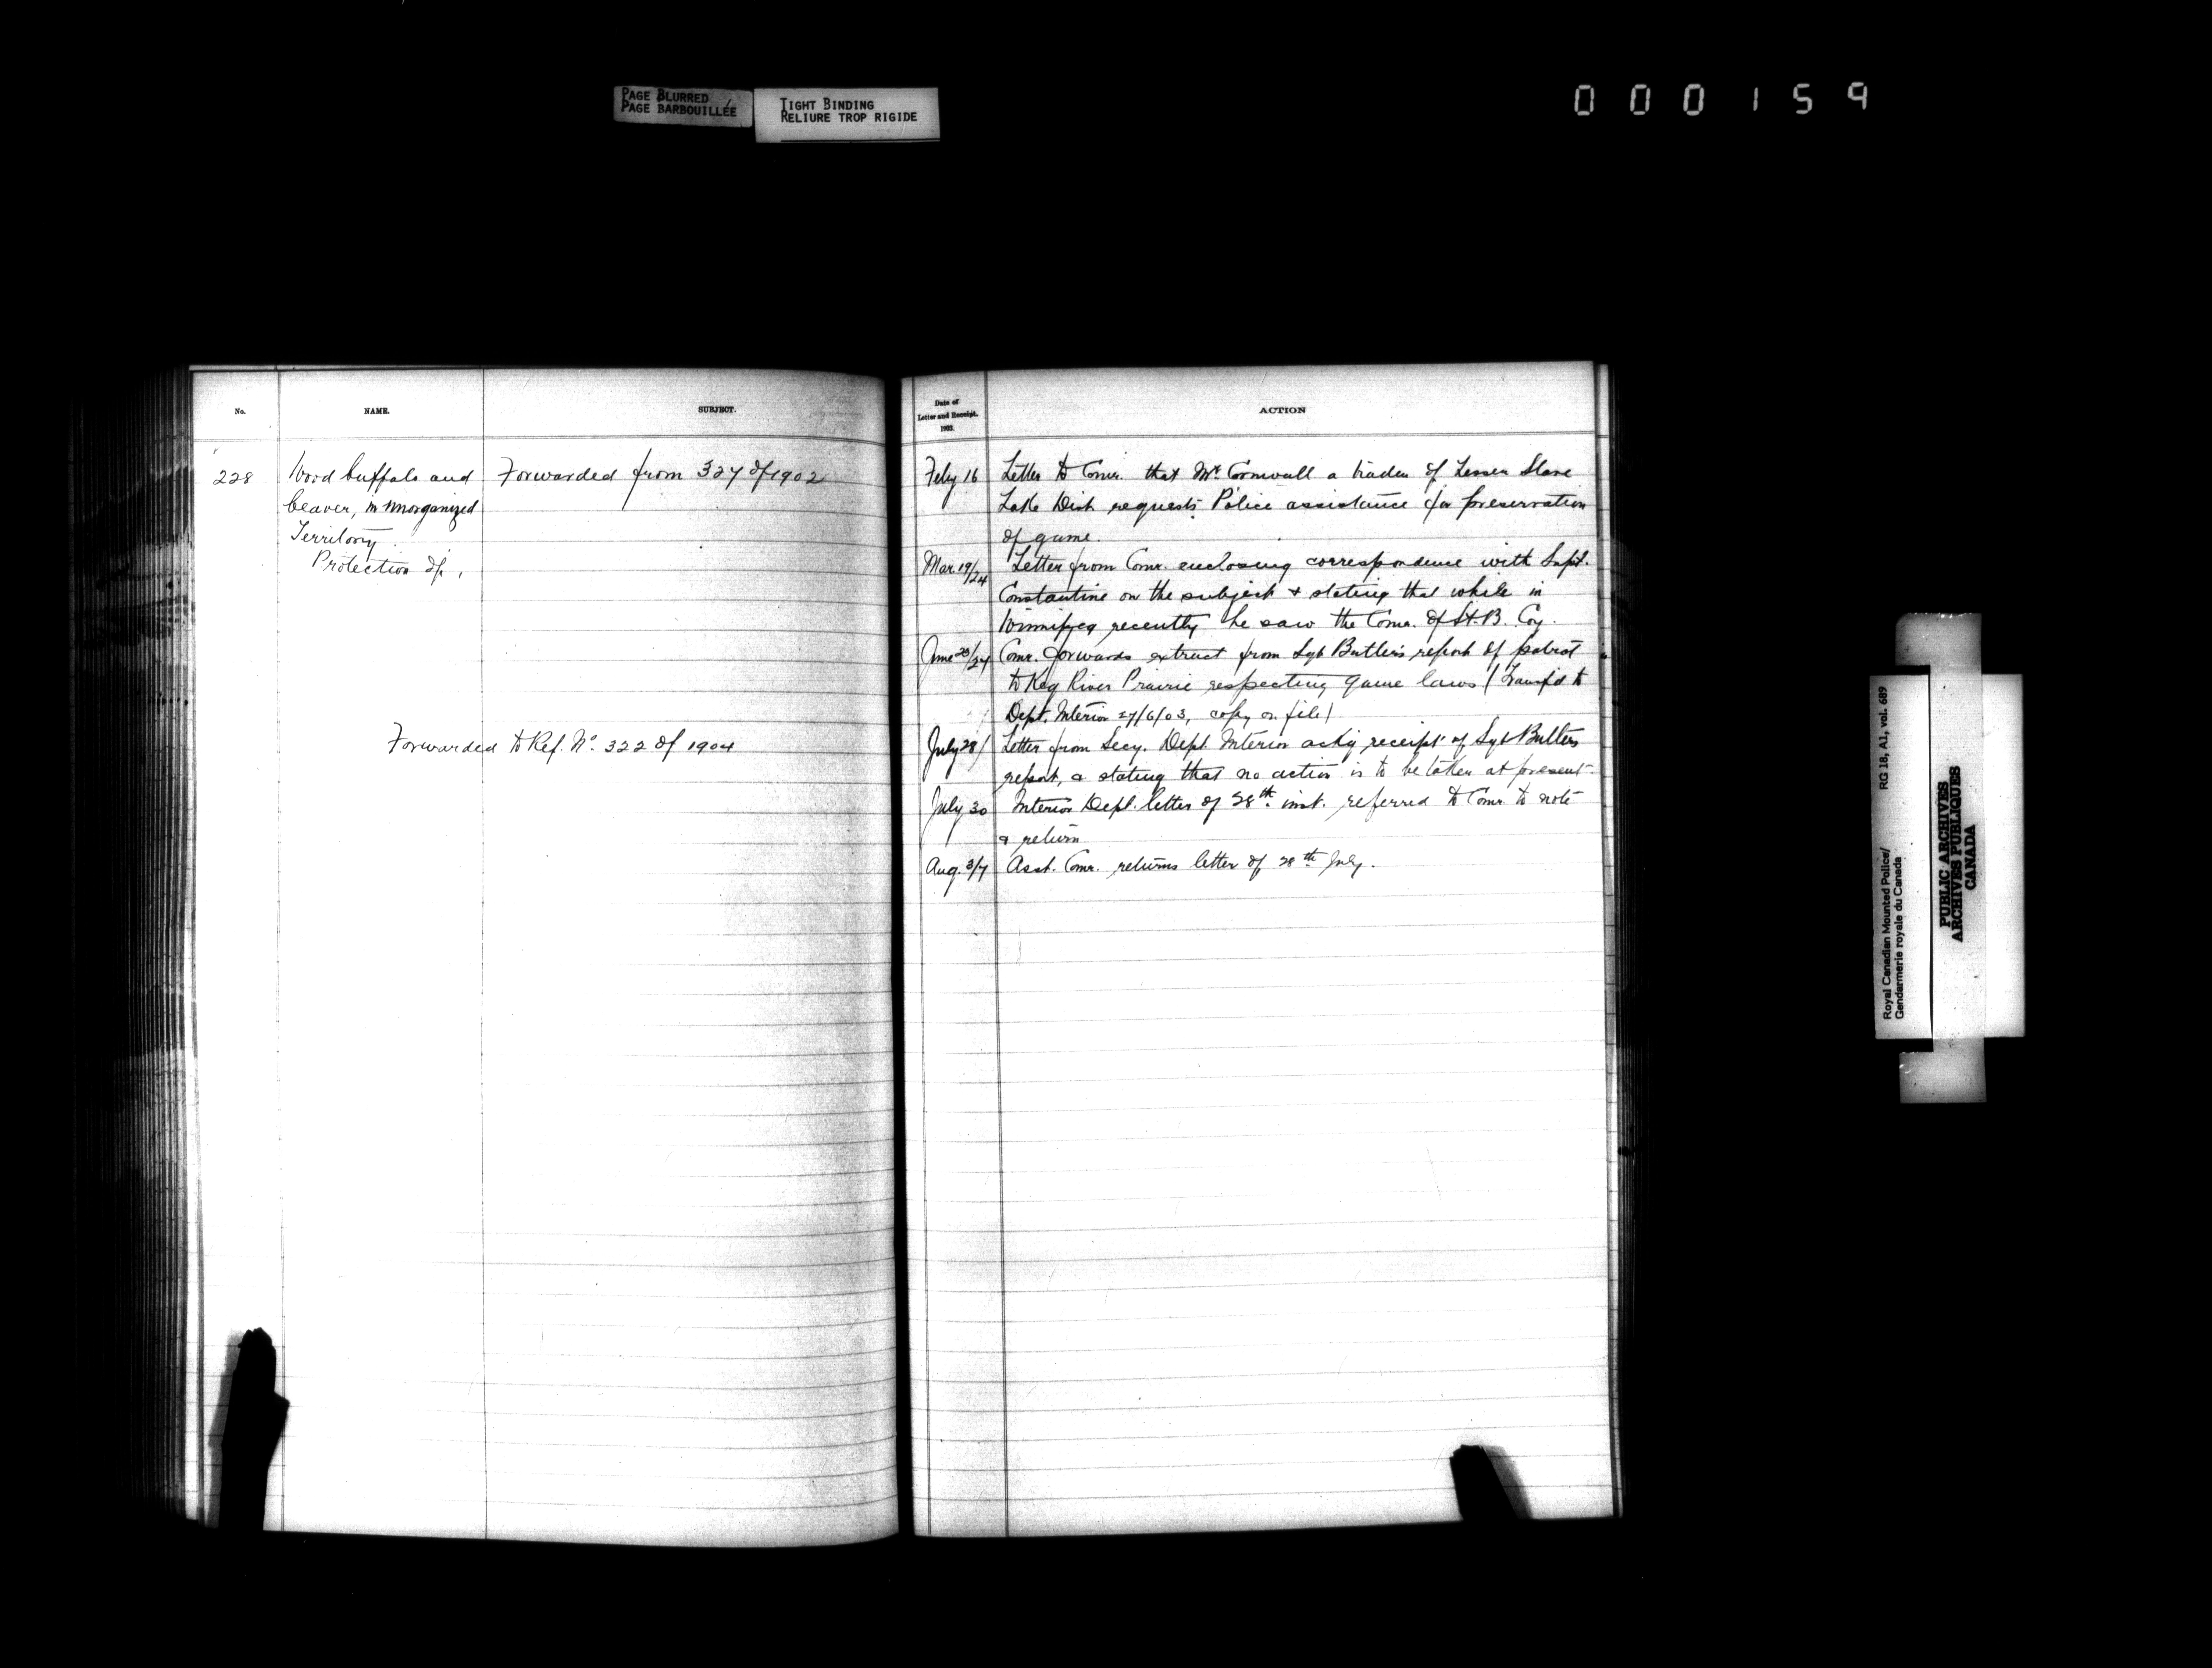 PAGE BLURRED
PAGE BARBOUILLÉE
TIGHT BINDING
RELIURE TROP RIGIDE
000159
No.
NAME.
SUBJECT.
228
Wood buffalo and
beaver, in unorganized
Territory.
Protection of,
Forwarded from 327 of 1902
Forwarded to Ref. No. 322 of 1904
Date of
Letter and Receipt.
1903.
ACTION
Feby 16 Letter to Comr. that Mr. Cornwall a trader of Lesser Slave
Lake Dist. requests Police assistance for preservation
of game.
Mar. 19/24 Letter from Comr. enclosing correspondence with Supt.
Constantine on the subject & stating that while in
Winnipeg recently he saw the Comr. of H.B. Coy.
June 20/24 Comr. forwards extract from Sgt Butler's report of patrol
to Keg River Prairie respecting game laws (Transfd to
Dept. Interior 27/6/03, copy on file)
July 28/ Letter from Secy. Dept Interior ackg receipt of Sgt Butlers
report, & stating that no action is to be taken at present.
July 30 Interior Dept. letter of 28th inst. referred to Comr. to note
& return
Aug. 3/7 Asst. Comr. returns letter of 28th July.
Royal Canadian Mounted Police/
Gendarmerie royale du Canada
RG 18, A1, vol. 689
PUBLIC ARCHIVES
ARCHIVES PUBLIQUES
CANADA